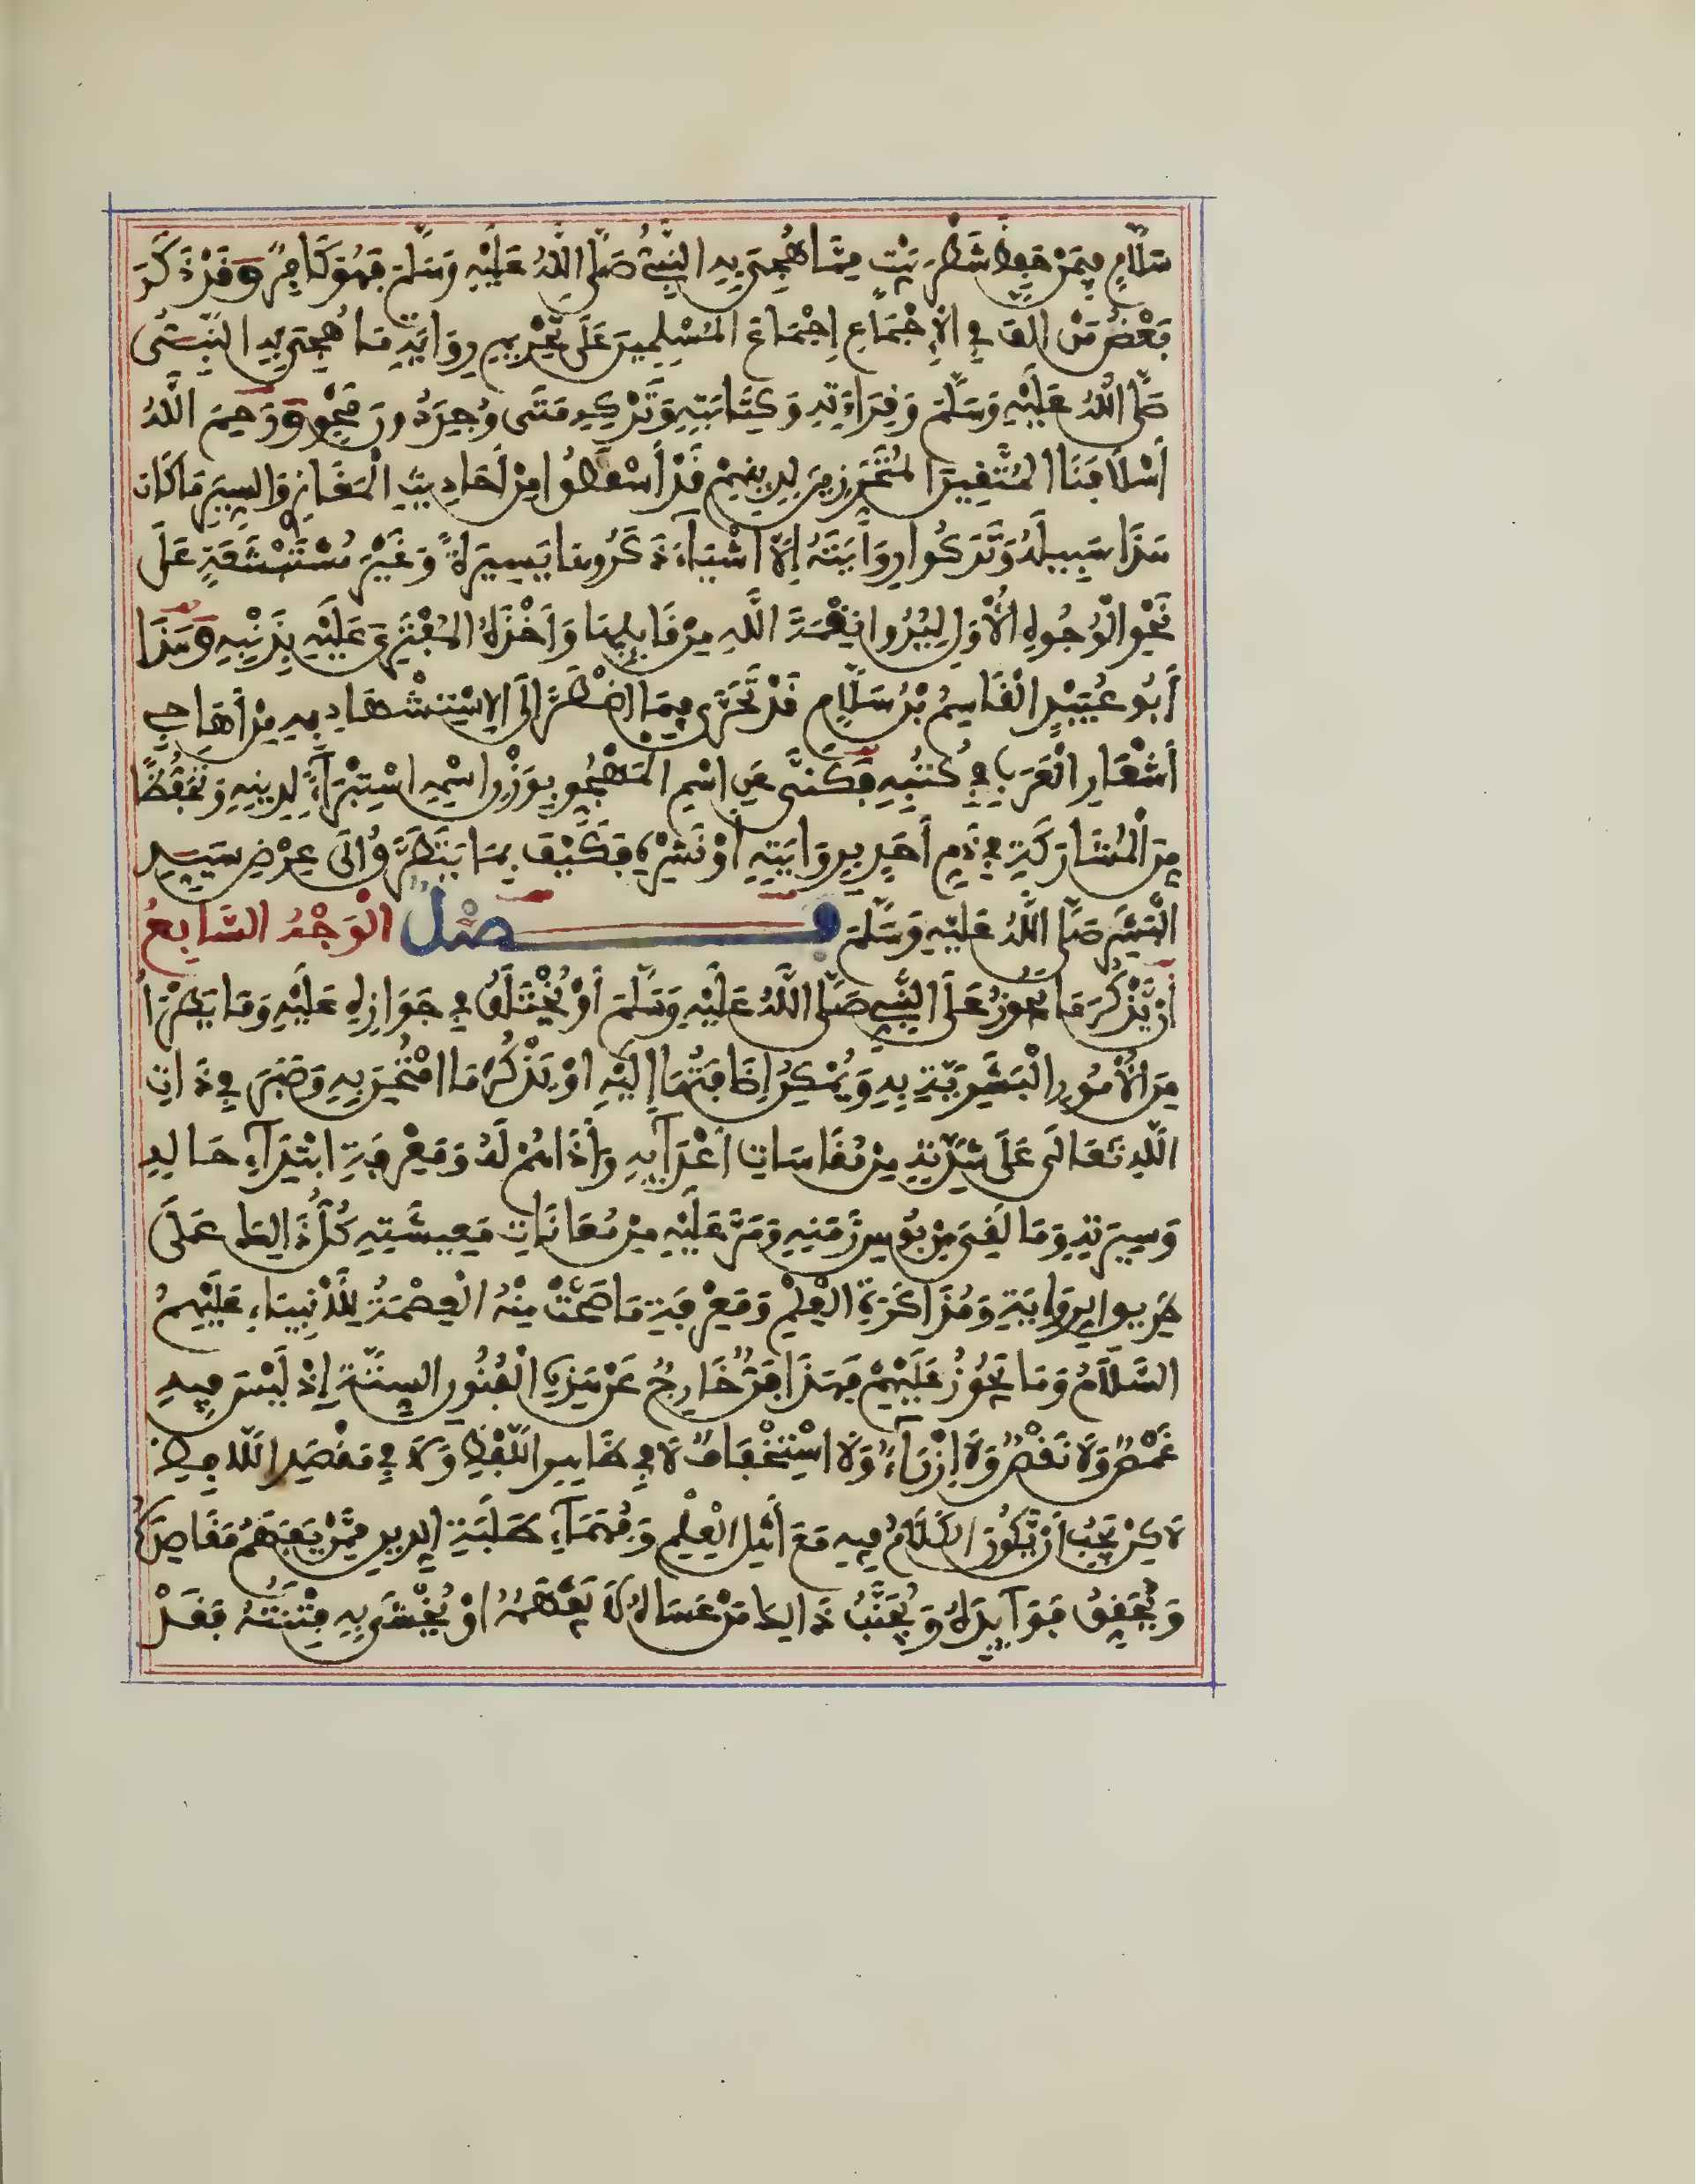 سَلَّامٍ فِيمَنْ حَفِظَ شَطْرَ بَيْتٍ مِمَّا هُجِيَ بِهِ النَّبِيُّ صَلَّى اللَّهُ عَلَيْهِ وَسَلَّمَ فَهُوَ كَافِرٌ وَقَدْ ذَكَرَ
بَعْضُ مَنْ أَلَّفَ فِي الْإِجْمَاعِ إِجْمَاعَ الْمُسْلِمِينَ عَلَى تَحْرِيمِ رِوَايَةِ مَا هُجِيَ بِهِ النَّبِيُّ
صَلَّى اللَّهُ عَلَيْهِ وَسَلَّمَ وَقِرَاءَتِهِ وَكِتَابَتِهِ وَتَرْكِهِ مَتَى وُجِدَ دُونَ مَحْوٍ وَرَحِمَ اللَّهُ
أَسْلَافَنَا الْمُتَّقِينَ الْمُتَحَرِّزِينَ لِدِينِهِمْ فَقَدْ أَسْقَطُوا مِنْ أَحَادِيثِ الْمَغَازِي وَالسِّيَرِ مَا كَانَ
هَذَا سَبِيلُهُ وَتَرَكُوا رِوَايَتَهُ إِلَّا أَشْيَاءَ ذَكَرُوهَا يَسِيرَةً وَغَيْرَ مُسْتَبْشَعَةٍ عَلَى
نَحْوِ الْوُجُوهِ الْأُوَلِ لِيُرُوا نِقْمَةَ اللَّهِ مِنْ قَائِلِهَا وَأَخْذَهُ الْمُفْتَرِيَ عَلَيْهِ بِذَنْبِهِ وَهَذَا
أَبُو عُبَيْدٍ الْقَاسِمُ بْنُ سَلَّامٍ قَدْ تَحَرَّى فِيمَا اضْطُرَّ إِلَى الِاسْتِشْهَادِ بِهِ مِنْ أَهَاجِي
أَشْعَارِ الْعَرَبِ فِي كُتُبِهِ فَكَنَّى عَنِ اسْمِ الْمَهْجُوِّ بِوَزْنِ اسْمِهِ اسْتِبْرَاءً لِدِينِهِ وَتَحَفُّظًا
مِنَ الْمُشَارَكَةِ فِي ذَمِّ أَحَدٍ بِرِوَايَتِهِ أَوْ نَشْرِهِ فَكَيْفَ بِمَا يَتَطَرَّقُ إِلَى عِرْضِ سَيِّدِ
الْبَشَرِ صَلَّى اللَّهُ عَلَيْهِ وَسَلَّمَ فَصْلٌ الْوَجْهُ السَّابِعُ
أَنْ يَذْكُرَ مَا يَجُوزُ عَلَى النَّبِيِّ صَلَّى اللَّهُ عَلَيْهِ وَسَلَّمَ أَوْ يُخْتَلَفُ فِي جَوَازِهِ عَلَيْهِ وَمَا يَطْرَأُ
مِنَ الْأُمُورِ الْبَشَرِيَّةِ بِهِ وَيُمْكِنُ إِضَافَتُهَا إِلَيْهِ أَوْ يَذْكُرَ مَا امْتُحِنَ بِهِ وَصَبَرَ فِي ذَاتِ
اللَّهِ تَعَالَى عَلَى شِدَّتِهِ مِنْ مُقَاسَاتِ أَعْدَائِهِ وَأَذَاهُمْ لَهُ وَمَعْرِفَةِ ابْتِدَاءِ حَالِهِ
وَسِيرَتِهِ وَمَا لَقِيَ مِنْ بُؤْسِ زَمَنِهِ وَمَرَّ عَلَيْهِ مِنْ مُعَانَاتِ مَعِيشَتِهِ كُلُّ ذَالِكَ عَلَى
طَرِيقِ الرِّوَايَةِ وَمُذَاكَرَةِ الْعِلْمِ وَمَعْرِفَةِ مَا صَحَّتْ مِنْهُ الْعِصْمَةُ لِلْأَنْبِيَاءِ عَلَيْهِمُ
السَّلَامُ وَمَا يَجُوزُ عَلَيْهِمْ فَهَذَا فَنٌّ خَارِجٌ عَنْ هَذِهِ الْفُنُونِ السِّتَّةِ إِذْ لَيْسَ فِيهِ
غَمْصٌ وَلَا نَقْصٌ وَلَا إِزْرَاءٌ وَلَا اسْتِخْفَافٌ لَا فِي ظَاهِرِ اللَّفْظِ وَلَا فِي مَقْصَدِ اللَّافِظِ
لَاكِنْ يَجِبُ أَنْ يَكُونَ الْكَلَامُ فِيهِ مَعَ أَهْلِ الْعِلْمِ وَفُهَمَاءِ طَلَبَةِ الدِّينِ مِمَّنْ يَفْهَمُ مَقَاصِدَهُ
وَيُحَقِّقُ فَوَائِدَهُ وَيُجَنَّبُ ذَالِكَ مَنْ عَسَاهُ لَا يَفْهَمُهُ أَوْ يُخْشَى بِهِ فِتْنَتُهُ فَقَدْ